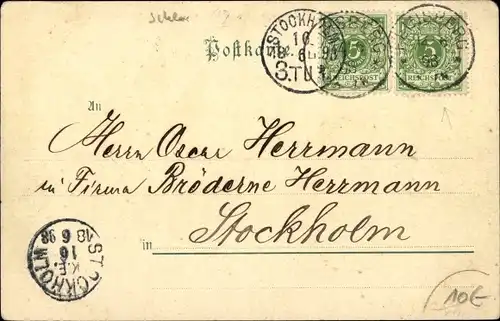 Schles
Postkarte
STOCKHOLM
16
18 6 98
3.TUR
5 5
REICHSPOST REICHSPOST
An
Herrn Oscar Herrmann
in Firma Bröderne Herrmann
Stockholm
in
STOCKHOLM
K.E.
10
18 6 98
10€